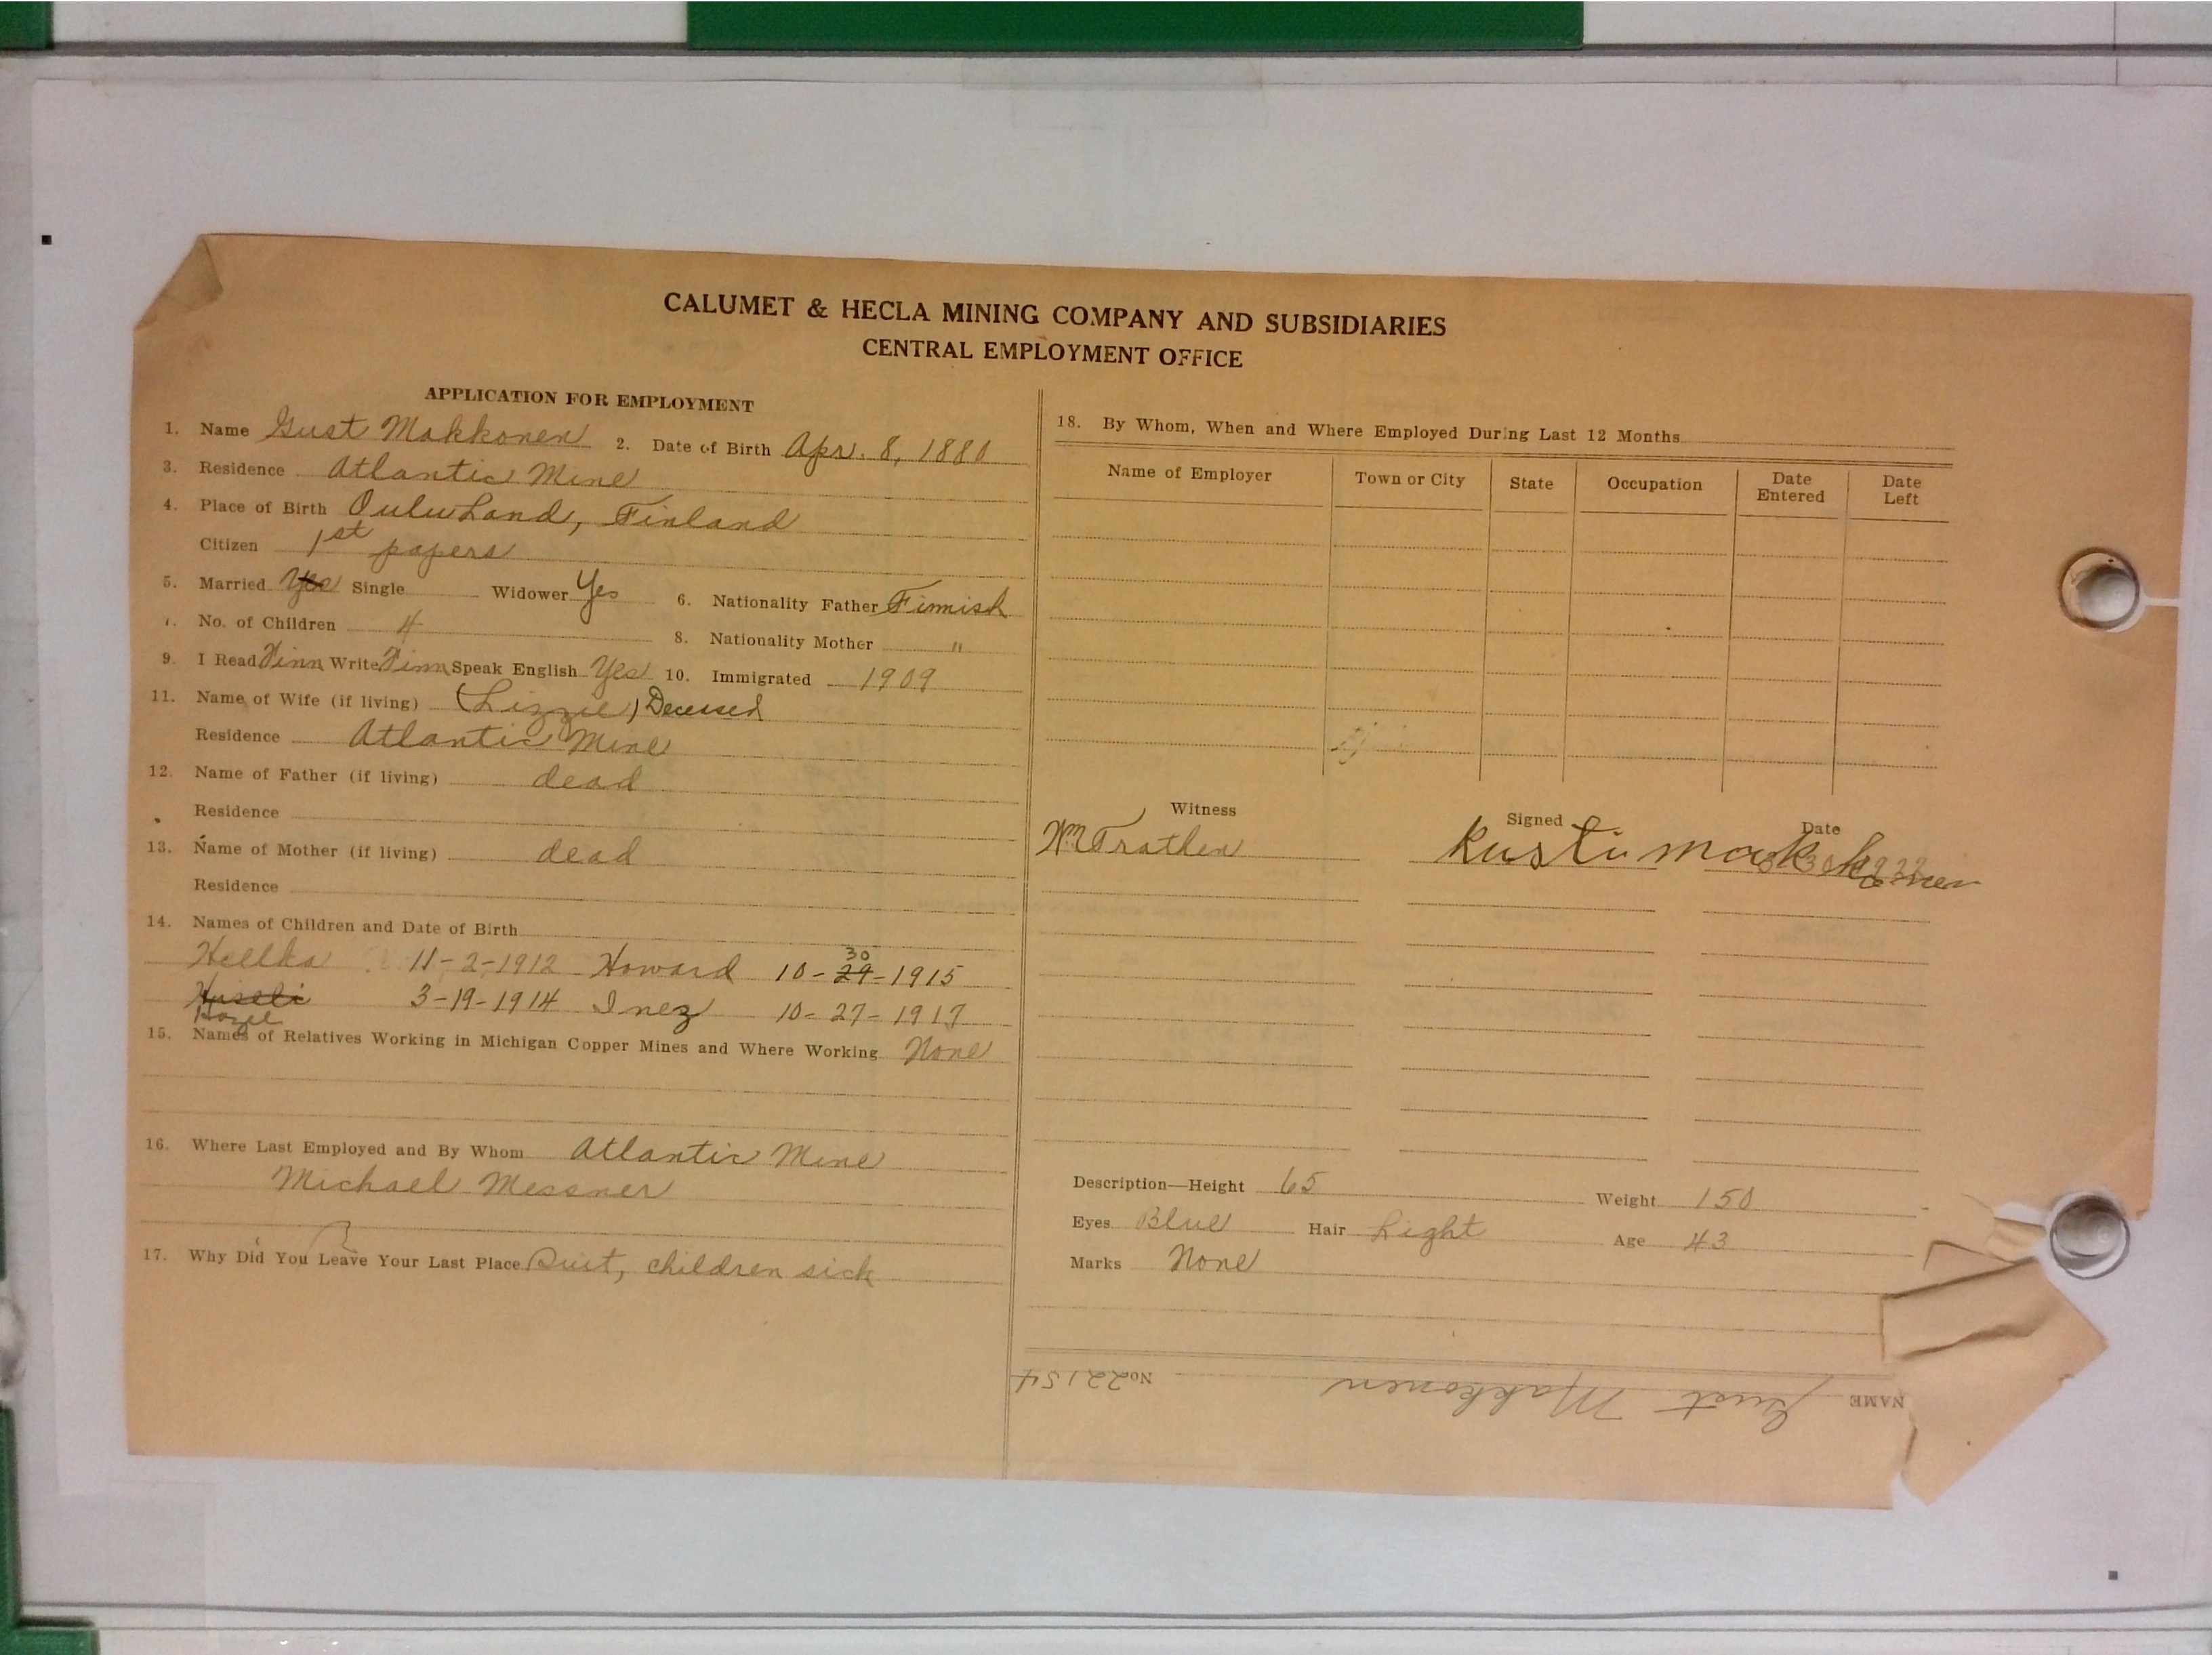 CALUMET & HECLA MINING COMPANY AND SUBSIDIARIES
CENTRAL EMPLOYMENT OFFICE
APPLICATION FOR EMPLOYMENT
1. Name Gust Makkonen 2. Date of Birth Apr. 8, 1880
3. Residence Atlantic Mine
4. Place of Birth Oulu Land, Finland
Citizen 1st papers
5. Married Yes Single Widower Yes 6. Nationality Father Finnish
7. No. of Children 4 8. Nationality Mother "
9. I Read Finn Write Finn Speak English Yes 10. Immigrated 1909
11. Name of Wife (if living) (Lizzie) Deceased
Residence Atlantic Mine
12. Name of Father (if living) dead
Residence
13. Name of Mother (if living) dead
Residence
14. Names of Children and Date of Birth
11-2-1912 Howard 10-29-1915
30
3-19-1914 Inez 10-27-1917
15. Names of Relatives Working in Michigan Copper Mines and Where Working None
16. Where Last Employed and By Whom Atlantic Mine
Michael Messner
17. Why Did You Leave Your Last Place Quit, children sick
18. By Whom, When and Where Employed During Last 12 Months
Name of Employer Town or City State Occupation Date Entered Date Left
Witness Signed Date
Wm Trathen Kusti Makkonen
Description—Height 65 Weight 150
Eyes Blue Hair Light Age 43
Marks None
NAME Gust Makkonen No 22154